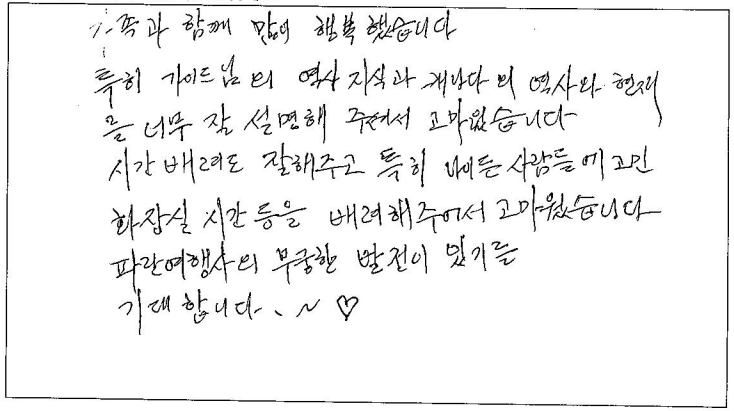 가족과 함께 많이 행복했습니다
특히 가이드님의 역사 지식과 캐나다의 역사와 현재
를 너무 잘 설명해 주셔서 고마웠습니다
시간 배려도 잘해주고 특히 나이든 사람들에 고민
화장실 시간 등을 배려해주어서 고마웠습니다
파란여행사의 무궁한 발전이 있기를
기대합니다. ~ ♡